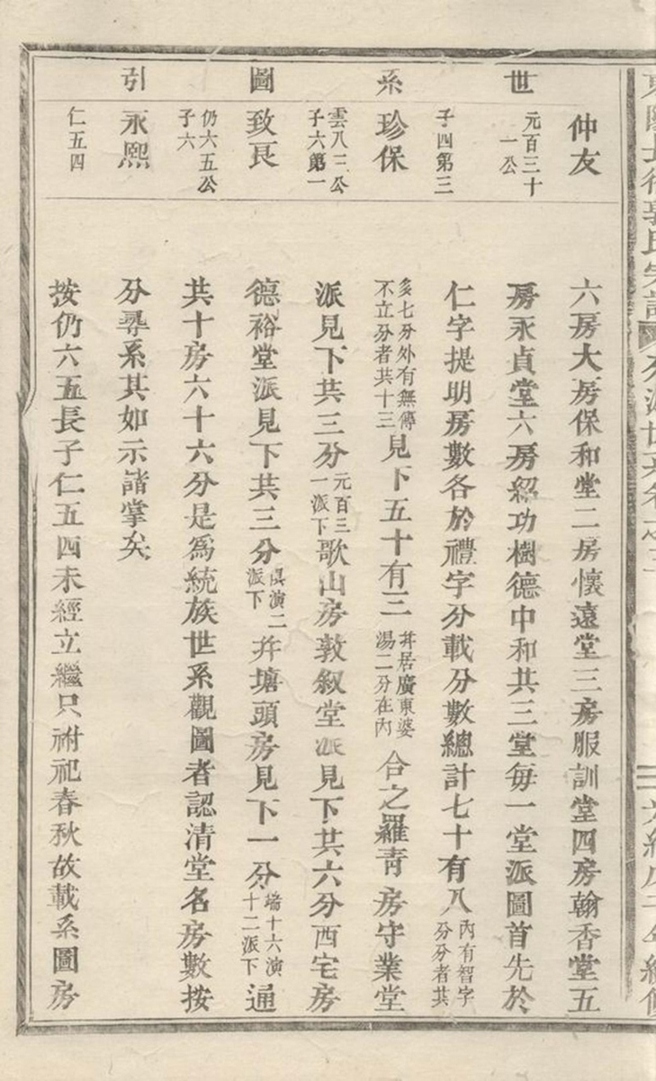 世系圖引
仲友
元百三十一公
子四第三
珍保
雲八三公
子六第一
致良
仍六五公
子六
永熙
仁五四
六房大房保和堂二房懷遠堂三房服訓堂四房翰香堂五
房永貞堂六房紹功樹德中和共三堂每一堂派圖首先於
仁字提明房數各於禮字分載分數總計七十有八內有智字分分者共
多七分外有無傳不立分者共十三見下五十有三并居廣東婆湯二分在內合之羅青房守業堂
派見下共三分元百三一派下歌山房敦叙堂派見下共六分西宅房
德裕堂派見下共三分淏演二派下并塘頭房見下一分端十六演十二派下通
共十房六十六分是爲統族世系觀圖者認清堂名房數按
分尋系其如示諸掌矣
按仍六五長子仁五四未經立繼只祔祀春秋故載系圖房